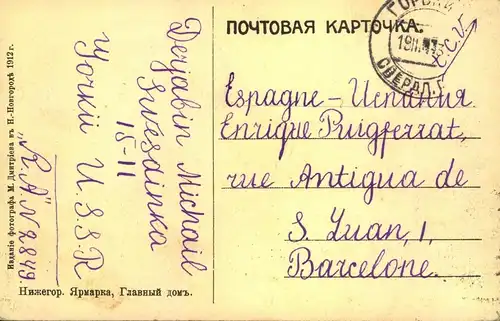 ПОЧТОВАЯ КАРТОЧКА.
Espagne - Испания
Enrique Puigferrat,
rue Antigua de
S. Juan, 1,
Barcelone.
Derjabin Michail
Swesdinka
15-11
Gorkii U.S.S.R
"R.A" N 2849
Изданіе фотографа М. Дмитріева въ Н.-Новгородѣ 1912 г.
Нижегор. Ярмарка, Главный домъ.